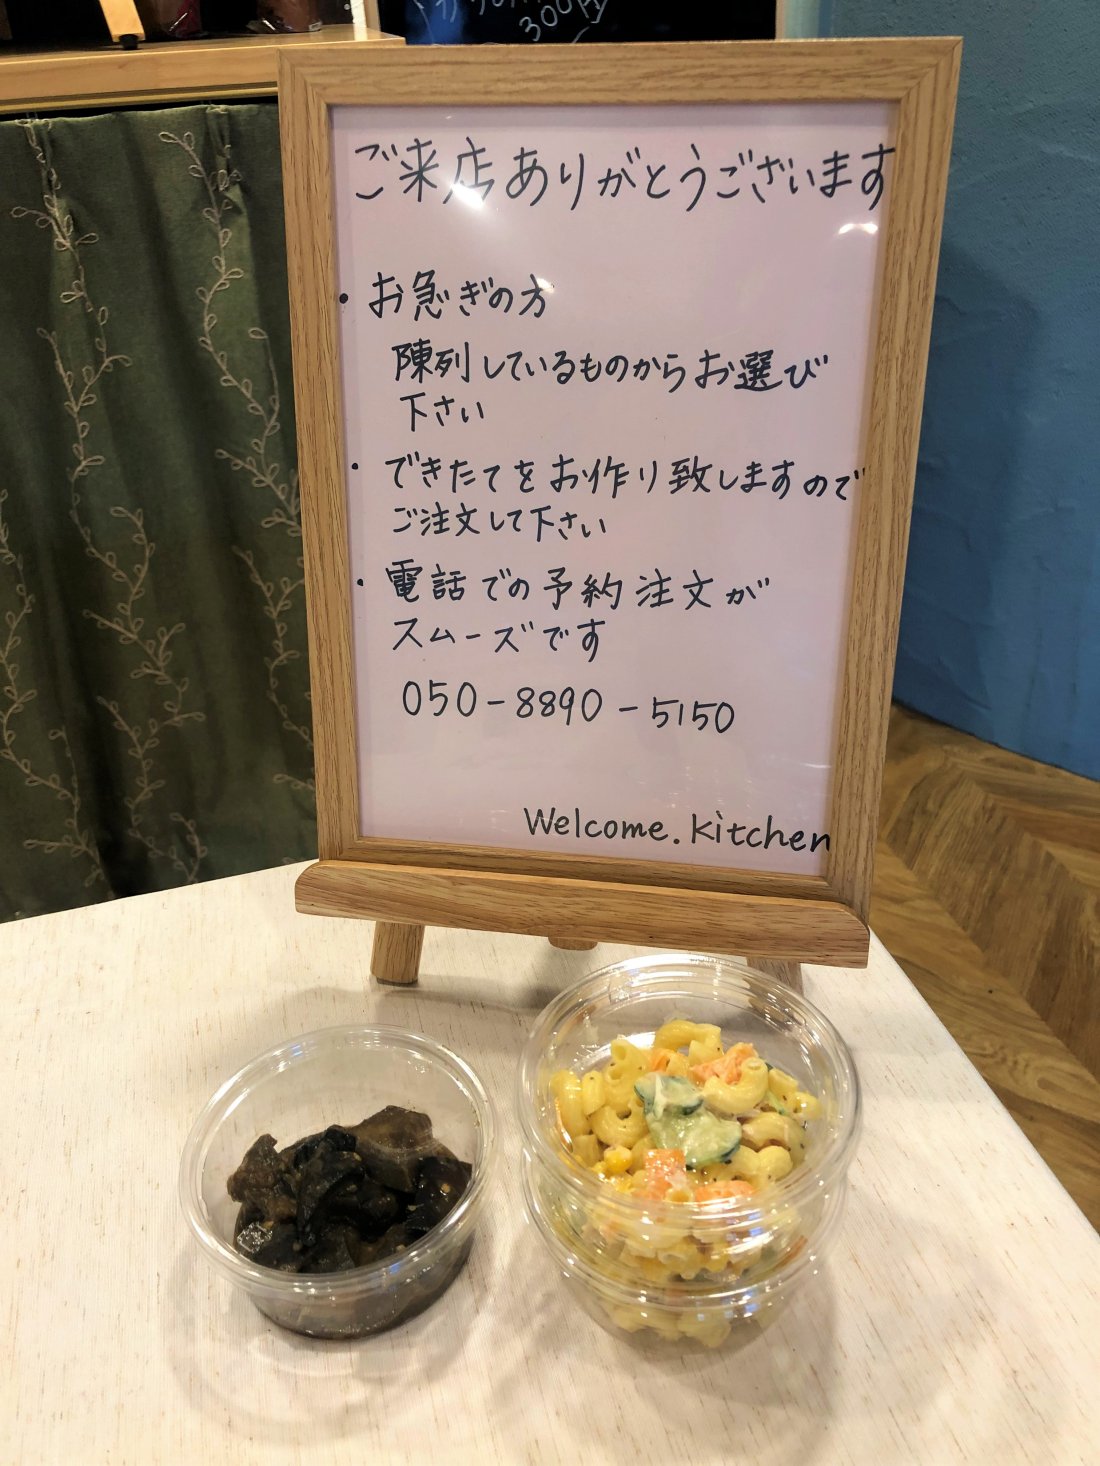 300円
ご来店ありがとうございます
・お急ぎの方
陳列しているものからお選び
下さい
・できたてをお作り致しますので
ご注文して下さい
・電話での予約注文が
スムーズです
050-8890-5150
Welcome.kitchen